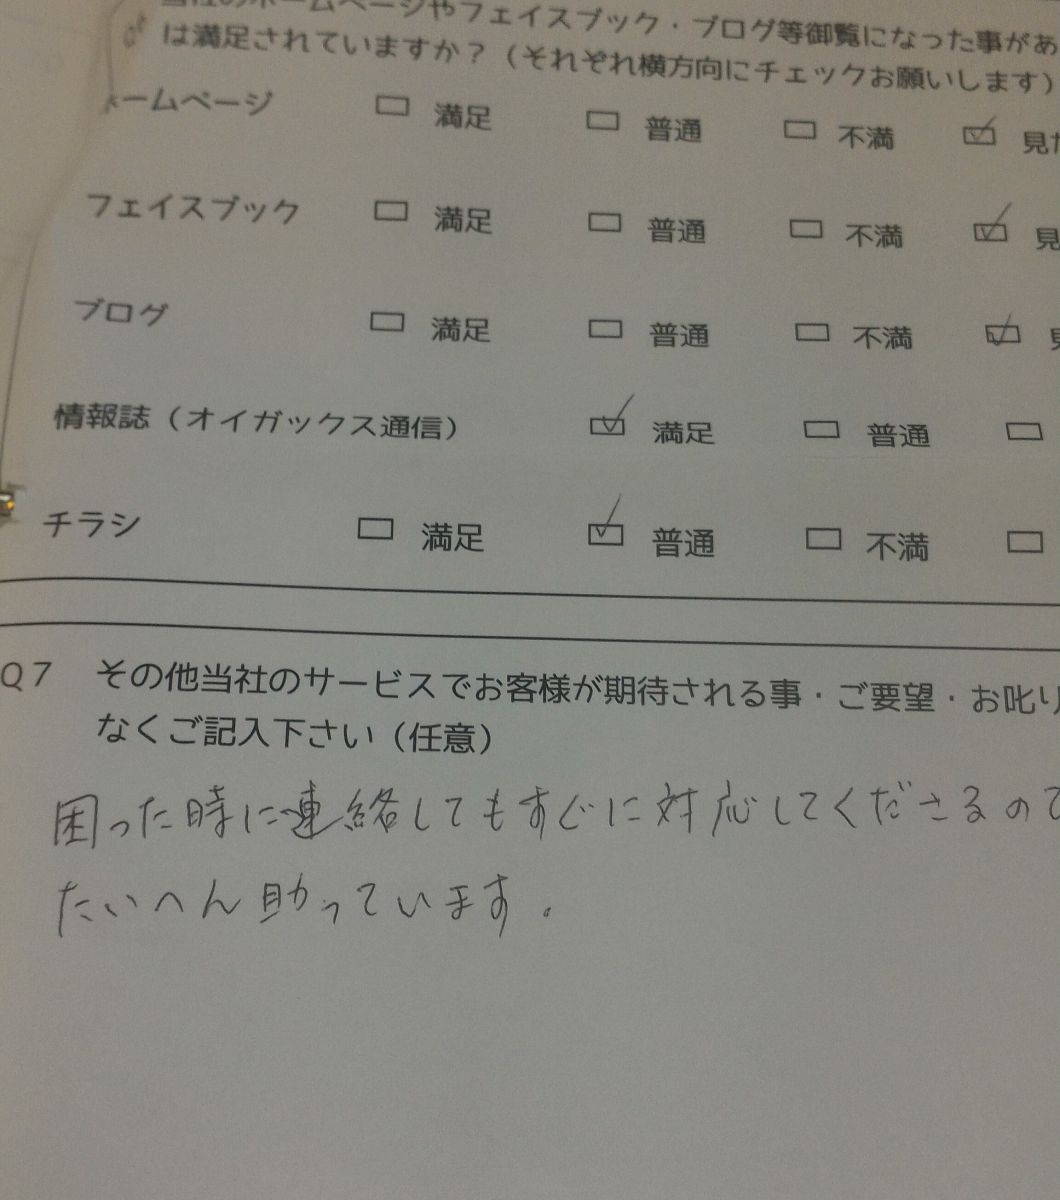 当社のホームページやフェイスブック・ブログ等御覧になった事があ
は満足されていますか？（それぞれ横方向にチェックお願いします）
ホームページ □ 満足 □ 普通 □ 不満 ☑ 見た
フェイスブック □ 満足 □ 普通 □ 不満 ☑ 見
ブログ □ 満足 □ 普通 □ 不満 ☑ 見
情報誌（オイガックス通信） ☑ 満足 □ 普通 □
チラシ □ 満足 ☑ 普通 □ 不満 □
Q７ その他当社のサービスでお客様が期待される事・ご要望・お叱り
なくご記入下さい（任意）
困った時に連絡してもすぐに対応してくださるので
たいへん助っています。